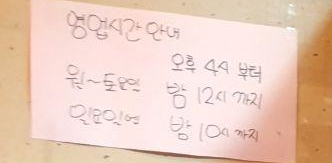 영업시간 안내
오후 4시 부터
월~토요일 밤 12시 까지
일요일엔 밤 10시 까지